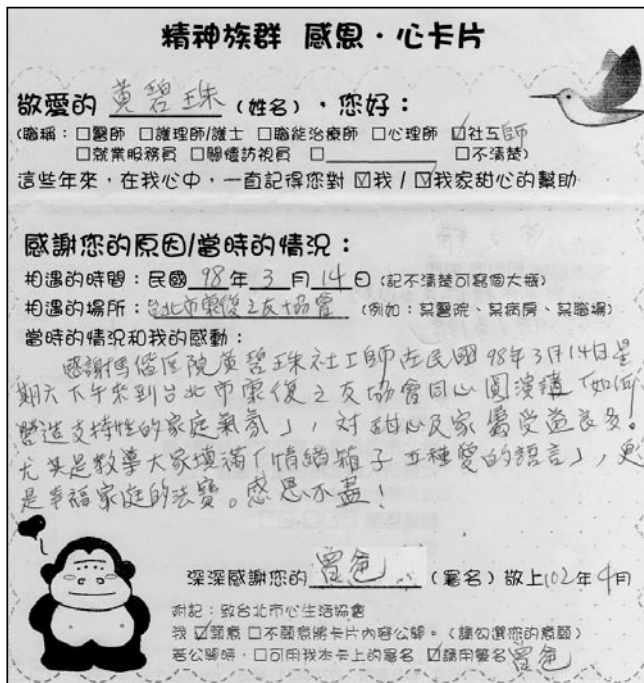 精神族群 感恩·心卡片
敬愛的 黃碧珠 (姓名),您好:
(職稱:□醫師 □護理師/護士 □職能治療師 □心理師 ☑社工師
□就業服務員 □關懷訪視員 □__________ □不清楚)
這些年來,在我心中,一直記得您對 ☑我 / ☑我家甜心的幫助
感謝您的原因/當時的情況:
相遇的時間:民國 98 年 3 月 14 日 (記不清楚可寫個大概)
相遇的場所:台北市康復之友協會 (例如:某醫院、某病房、某職場)
當時的情況和我的感動:
感謝馬偕医院黃碧珠社工師在民國98年3月14日星
期六下午來到台北市康復之友協會同心園演講「如何
營造支持性的家庭氣氛」,対甜心及家屬受益良多。
尤其是教導大家填滿「情緒箱子五種愛的語言」,更
是幸福家庭的法寶。感恩不盡!
深深感謝您的 曾爸 (署名) 敬上102年4月
附記:致台北市心生活協會
我 ☑願意 □不願意將卡片內容公開。(請勾選您的意願)
若公開時,□可用我本卡上的署名 ☑請用筆名 曾爸